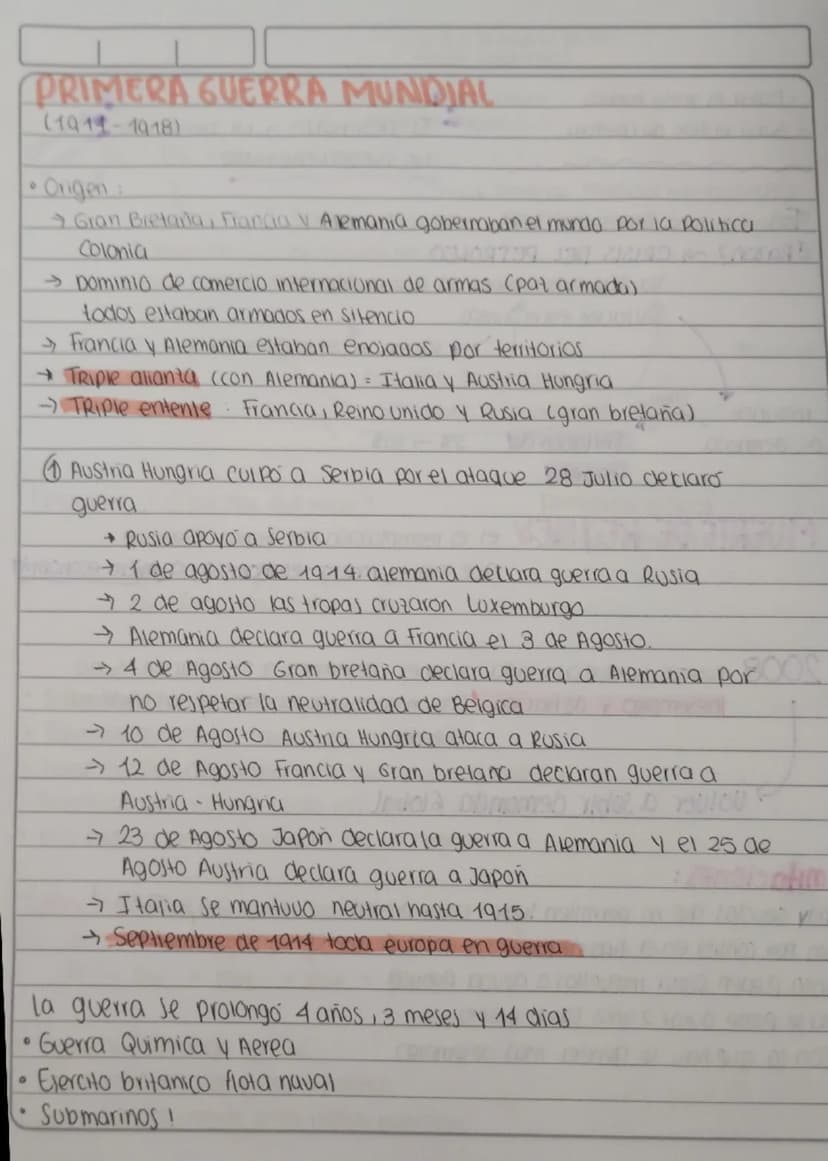 PRIMERA GUERRA MUNDIAL
(1911-1918)
• Origen:
→ Gran Bretaña, Francia y Alemania gobernaban el mundo por la politica
Colonia
→ Dominio de comercio internacional de armas (paz armada)
todos estaban armados en silencio
→ Francia y Alemania estaban enojados por territorios
→ Triple alianza (con Alemania) = Italia y Austria Hungria
→ TRiple entente. Francia, Reino unido y Rusia (gran bretaña)
① Austria Hungria culpó a Serbia por el ataque 28 Julio declaró
guerra
→ Rusia apoyó a Serbia
→ 1 de agosto de 1914. alemania declara guerra a Rusia
→ 2 de agosto las tropas cruzaron Luxemburgo
→ Alemania declara guerra a Francia el 3 de Agosto.
→ 4 de Agosto Gran bretaña declara guerra a Alemania por
no respetar la neutralidad de Belgica
→ 10 de Agosto Austria Hungria ataca a Rusia
→ 12 de Agosto Francia y Gran bretaña declaran guerra a
Austria - Hungria
→ 23 de Agosto Japón declara la guerra a Alemania y el 25 de
Agosto Austria declara guerra a Japón
→ Italia se mantuvo neutral hasta 1915.
→ Septiembre de 1914 toda europa en guerra
la guerra se prolongó 4 años, 3 meses y 14 dias
• Guerra Quimica y Aerea
• Ejercito britanico flota naval
• Submarinos!